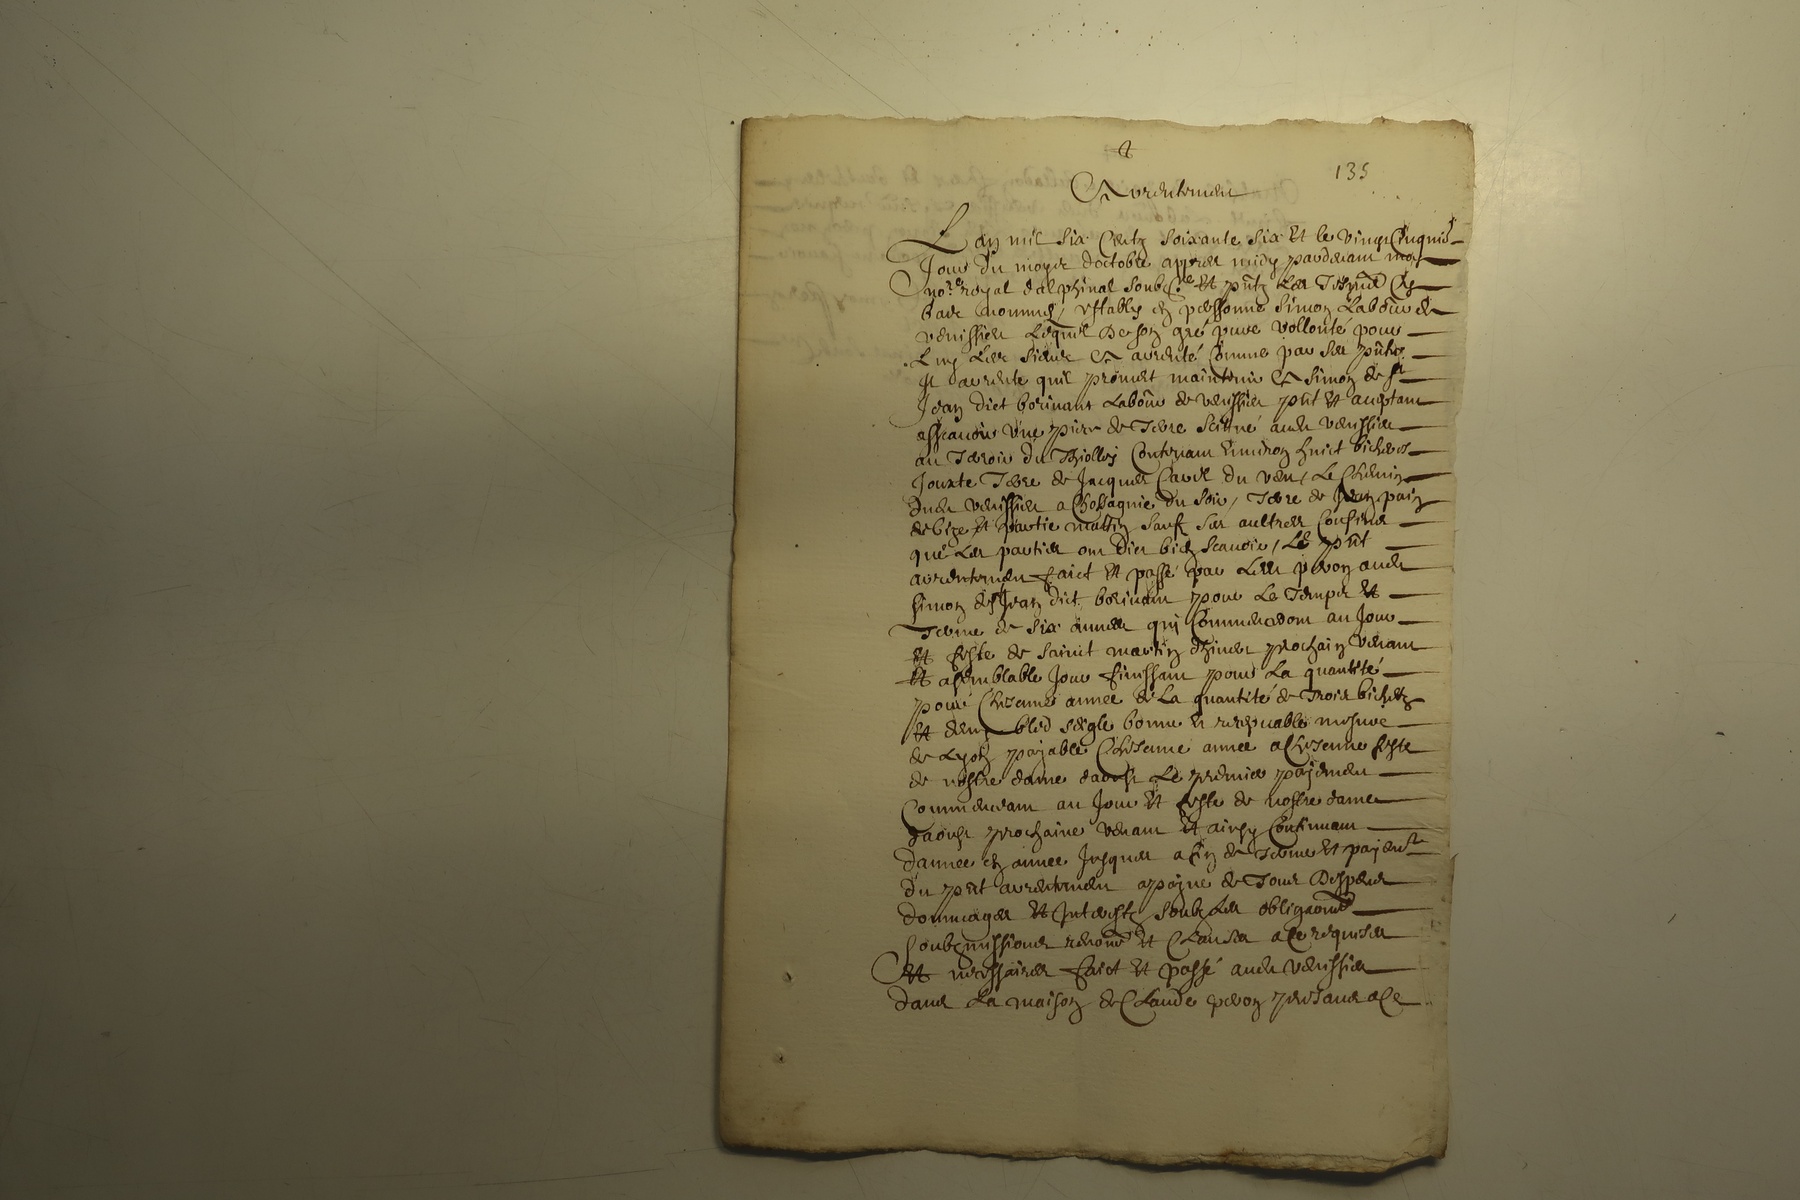 135
Arrentement
L an mil six centz soixante six et le vingt cinquies.
Jour du moys doctobre appres midy pardevant moy
no.re royal dalphinal soubz.né et p̃ntz les tesmoins
bas nommes, establys en personne Simon Labour de
venissieu lequel de son gré pure vollonté pour
Luy les siens a arrenté comme par ses p̃ntes
Il arrente quil promet maintenir a Simon de st
Jean dict borinant Labour de venissieu p̃nt et acceptant
asscavoir une piece de terre scittué aud venissieu
au terroir du Thiolley contenant environ huict bicherees
Jouxte terre de Jacques Cavet du vent, Le Chemin
dud venissieu a Chassagnie du soir, terre de Jean pain
de bize et partie mattin sauf ses aultres confins
que les parties ont dict bien scavoir, Le p̃nt
arrentement faict et passé par led peron aud
simon de st Jean dict borinant pour Le temps et
terme de six annees qui commenceront au Jour
et feste de sainct martin dhiver prochain venant
et a semblable Jour finissant pour La quantité
pour chascune annee de La quantité de trois bichetz
et demy bled seigle bonne et recepvable mesure
de Lyon payable chascune annee a chascune feste
de nostre dame daoust Le premier payement
Commencant au Jour et feste de nostre dame
daoust prochaine venant et ainsy continuant
dannee en annee Jusques a fin de terme et payent
du p̃nt arrentement a peyne de tous despens
dommages et Interestz soubz Les obligaons
soubzmissions renons et clauses a ce requises
et necessaires faict et passé aud venissieu
dans La maison de Claude peron p̃ntz a ce